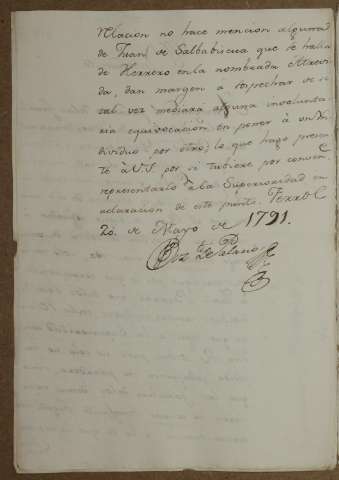 relacion no hace mencion alguna
de Juan de Salbabiscua que se halla
de Herrero en la nombrada Atrevi-
da, dan margen a sospechar de si
tal vez mediará alguna involunta-
ria equivocacion en poner à un Yn-
dividuo por otro; lo que hago presen-
te à V.S. por si tubiere por conven.te
representarlo à la Superioridad en
aclaracion de este punto. Ferrol
20. de Mayo de 1791.